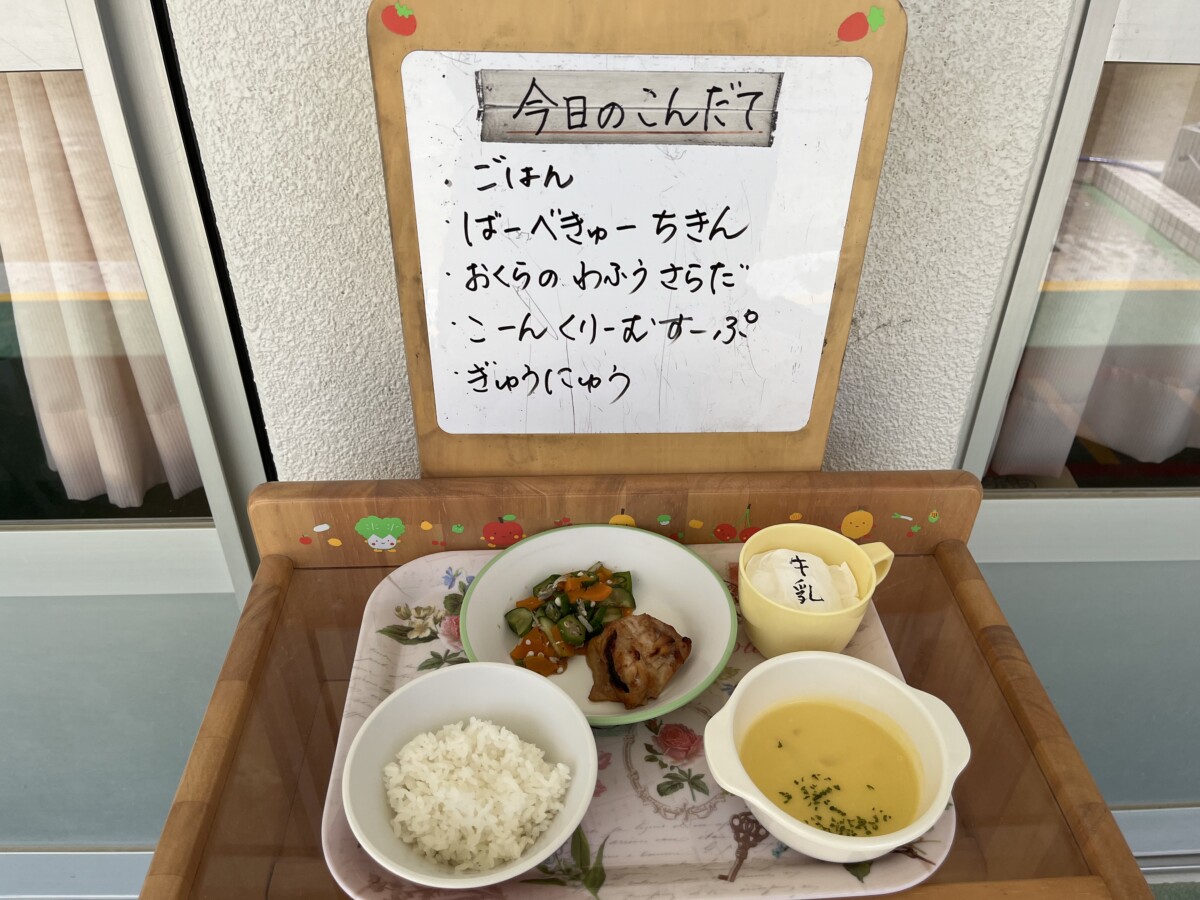 今日のこんだて
・ごはん
・ばーべきゅーちきん
・おくらのわふうさらだ
・こーんくりーむすーぷ
・ぎゅうにゅう
牛乳